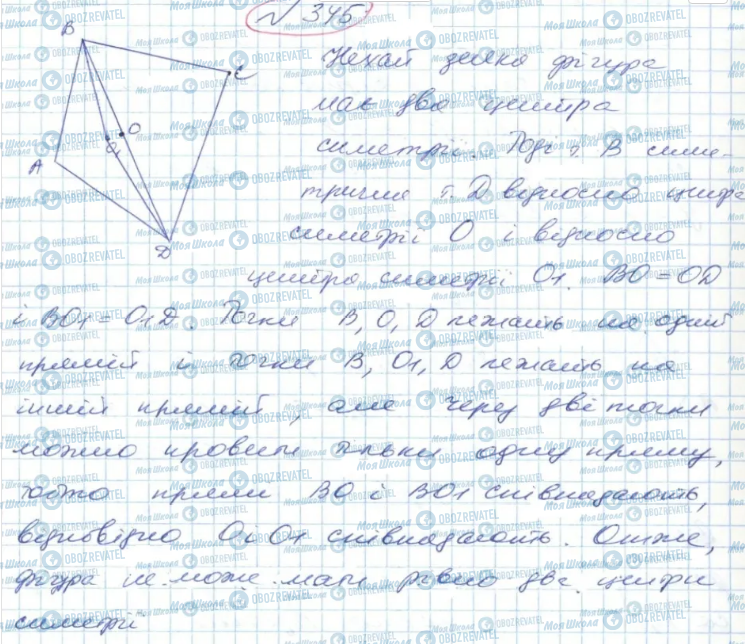 № 345
B
C
O
O1
A
D
Нехай деяка фігура
має два центра
симетрії. Тоді т. B симе-
трична т. D відносно центра
симетрії O і відносно
центра симетрії O1. BO = OD
і BO1 = O1D. Точки B, O, D лежать на одній
прямій і точки B, O1, D лежать на
іншій прямій, але через дві точки
можно провести тільки одну пряму,
тобто прямі BO і BO1 співпадають,
відповідно O і O1 співпадають. Отже,
фігура не може мати рівно два центри
симетрії
Моя Школа OBOZREVATEL